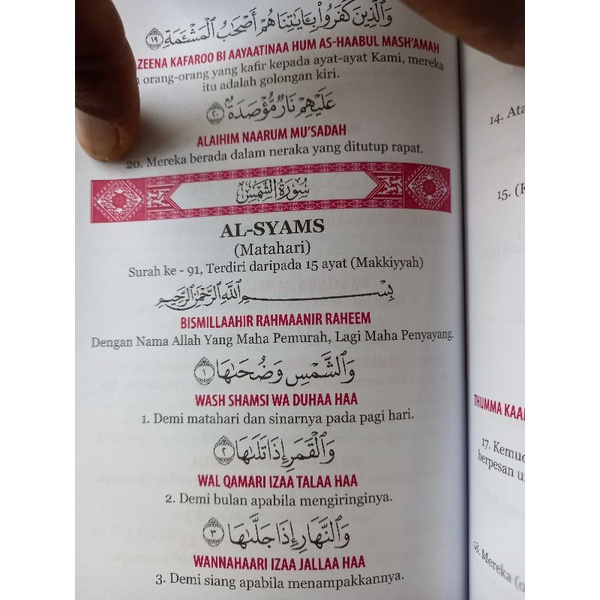 وَالَّذِينَ كَفَرُوا بِآيَاتِنَا هُمْ أَصْحَابُ الْمَشْأَمَةِ ١٩
ZEENA KAFAROO BI AAYAATINAA HUM AS-HAABUL MASH'AMAH
orang-orang yang kafir kepada ayat-ayat Kami, mereka
itu adalah golongan kiri.
عَلَيْهِمْ نَارٌ مُّؤْصَدَةٌ ٢٠
ALAIHIM NAARUM MU'SADAH
20. Mereka berada dalam neraka yang ditutup rapat.
سُورَةُ الشَّمْسِ
AL-SYAMS
(Matahari)
Surah ke - 91, Terdiri daripada 15 ayat (Makkiyyah)
بِسْمِ اللَّهِ الرَّحْمَٰنِ الرَّحِيمِ
BISMILLAAHIR RAHMAANIR RAHEEM
Dengan Nama Allah Yang Maha Pemurah, Lagi Maha Penyayang.
وَالشَّمْسِ وَضُحَاهَا ١
WASH SHAMSI WA DUHAA HAA
1. Demi matahari dan sinarnya pada pagi hari.
وَالْقَمَرِ إِذَا تَلَاهَا ٢
WAL QAMARI IZAA TALAA HAA
2. Demi bulan apabila mengiringinya.
وَالنَّهَارِ إِذَا جَلَّاهَا ٣
WANNAHAARI IZAA JALLAA HAA
3. Demi siang apabila menampakkannya.
14. Ata
15. (K
THUMMA KAA
17. Kemud
berpesan u
18. Mereka (o